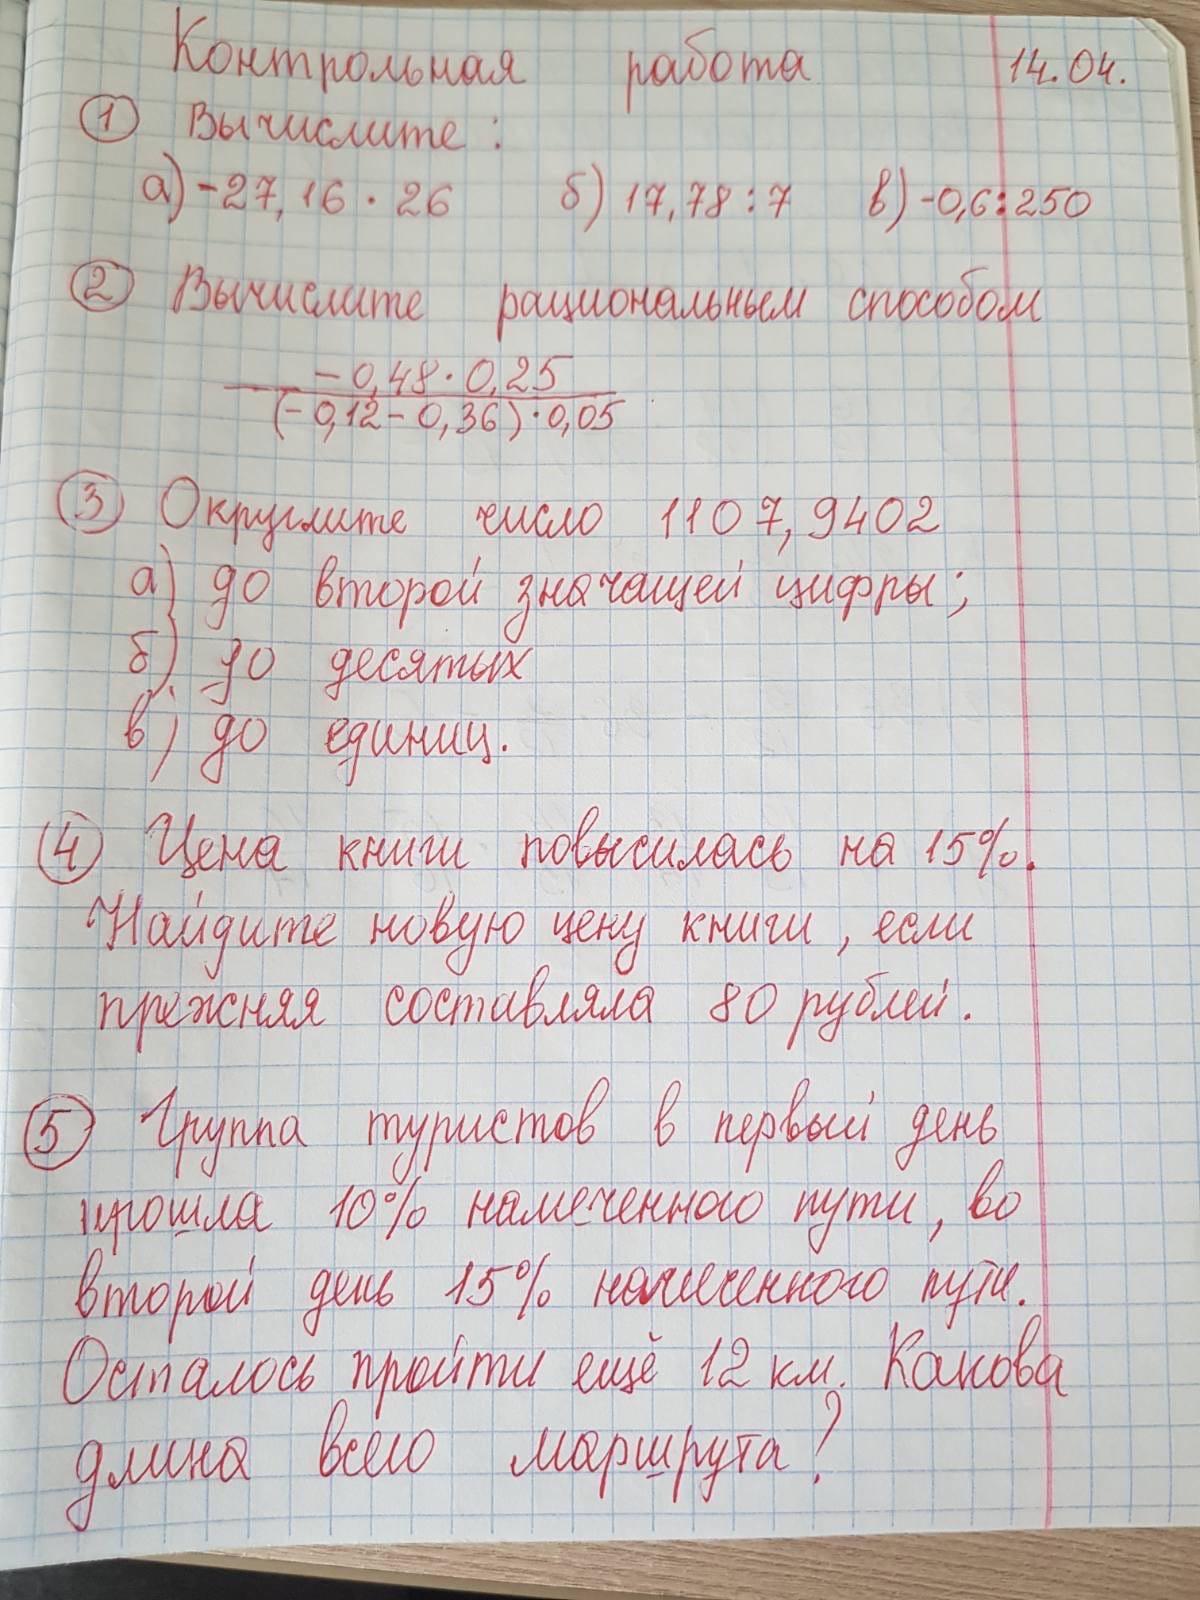 Контрольная работа 14.04.
① Вычислите:
а) -27,16 · 26 б) 17,78 : 7 в) -0,6 : 250
② Вычислите рациональным способом
-0,48 · 0,25
(-0,12 - 0,36) · 0,05
③ Округлите число 1107,9402
а) до второй значащей цифры;
б) до десятых
в) до единиц.
④ Цена книги повысилась на 15%.
Найдите новую цену книги, если
прежняя составляла 80 рублей.
⑤ Группа туристов в первый день
прошла 10% намеченного пути, во
второй день 15% намеченного пути.
Осталось пройти ещё 12 км. Какова
длина всего маршрута?